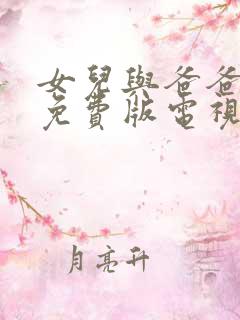 女兒與爸爸
免費版電視
月亮升